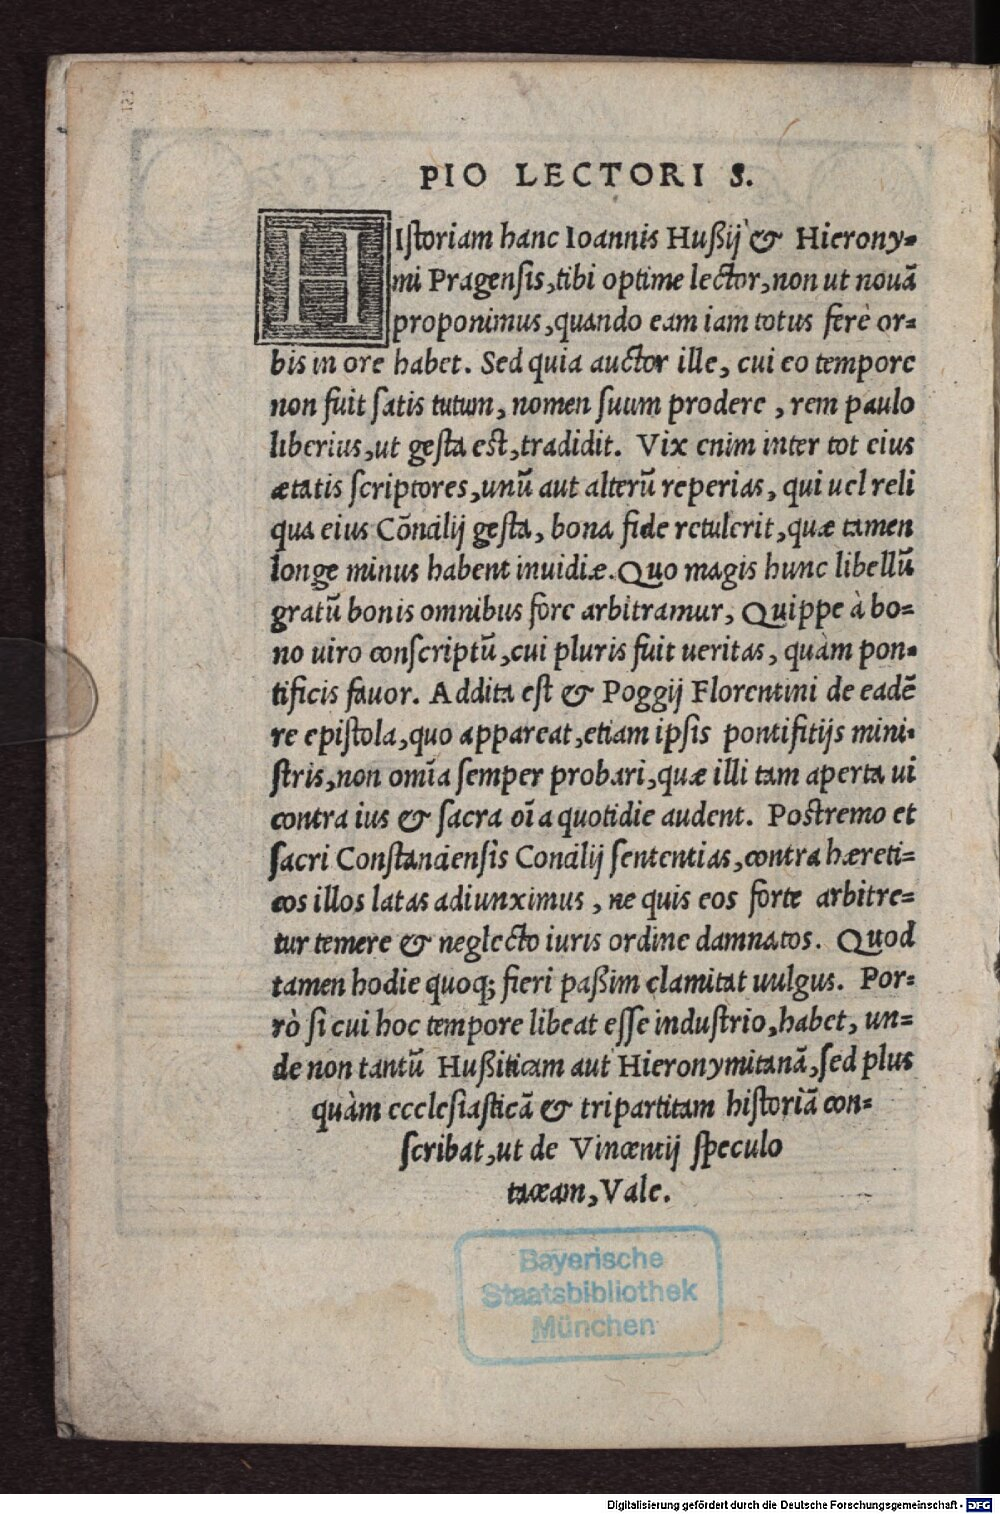 PIO LECTORI S.
HIſtoriam hanc Ioannis Hußij & Hierony=
mi Pragenſis, tibi optime lector, non ut nouā
proponimus, quando eam iam totus ferè or=
bis in ore habet. Sed quia auctor ille, cui eo tempore
non fuit ſatis tutum, nomen ſuum prodere, rem paulo
liberius, ut geſta eſt, tradidit. Vix enim inter tot eius
ætatis ſcriptores, unū aut alterū reperias, qui uel reli
qua eius Cōncilij geſta, bona fide retulerit, quæ tamen
longe minus habent inuidiæ. Quo magis hunc libellū
gratū bonis omnibus fore arbitramur, Quippe à bo=
no uiro conſcriptū, cui pluris fuit ueritas, quàm pon=
tificis fauor. Addita eſt & Poggij Florentini de eadē
re epiſtola, quo appareat, etiam ipſis pontifitijs mini=
ſtris, non omīa ſemper probari, quæ illi tam aperta ui
contra ius & ſacra oīa quotidie audent. Poſtremo et
ſacri Conſtancienſis Concilij ſententias, contra hæreti=
cos illos latas adiunximus, ne quis eos forte arbitre=
tur temere & neglecto iuris ordine damnatos. Quod
tamen hodie quoq; fieri paßim clamitat uulgus. Por=
rò ſi cui hoc tempore libeat eſſe induſtrio, habet, un=
de non tantū Hußiticam aut Hieronymitanā, ſed plus
quàm eccleſiaſticā & tripartitam hiſtoriā con=
ſcribat, ut de Vincentij ſpeculo
taceam, Vale.
Bayerische
Staatsbibliothek
München
Digitalisierung gefördert durch die Deutsche Forschungsgemeinschaft - DFG